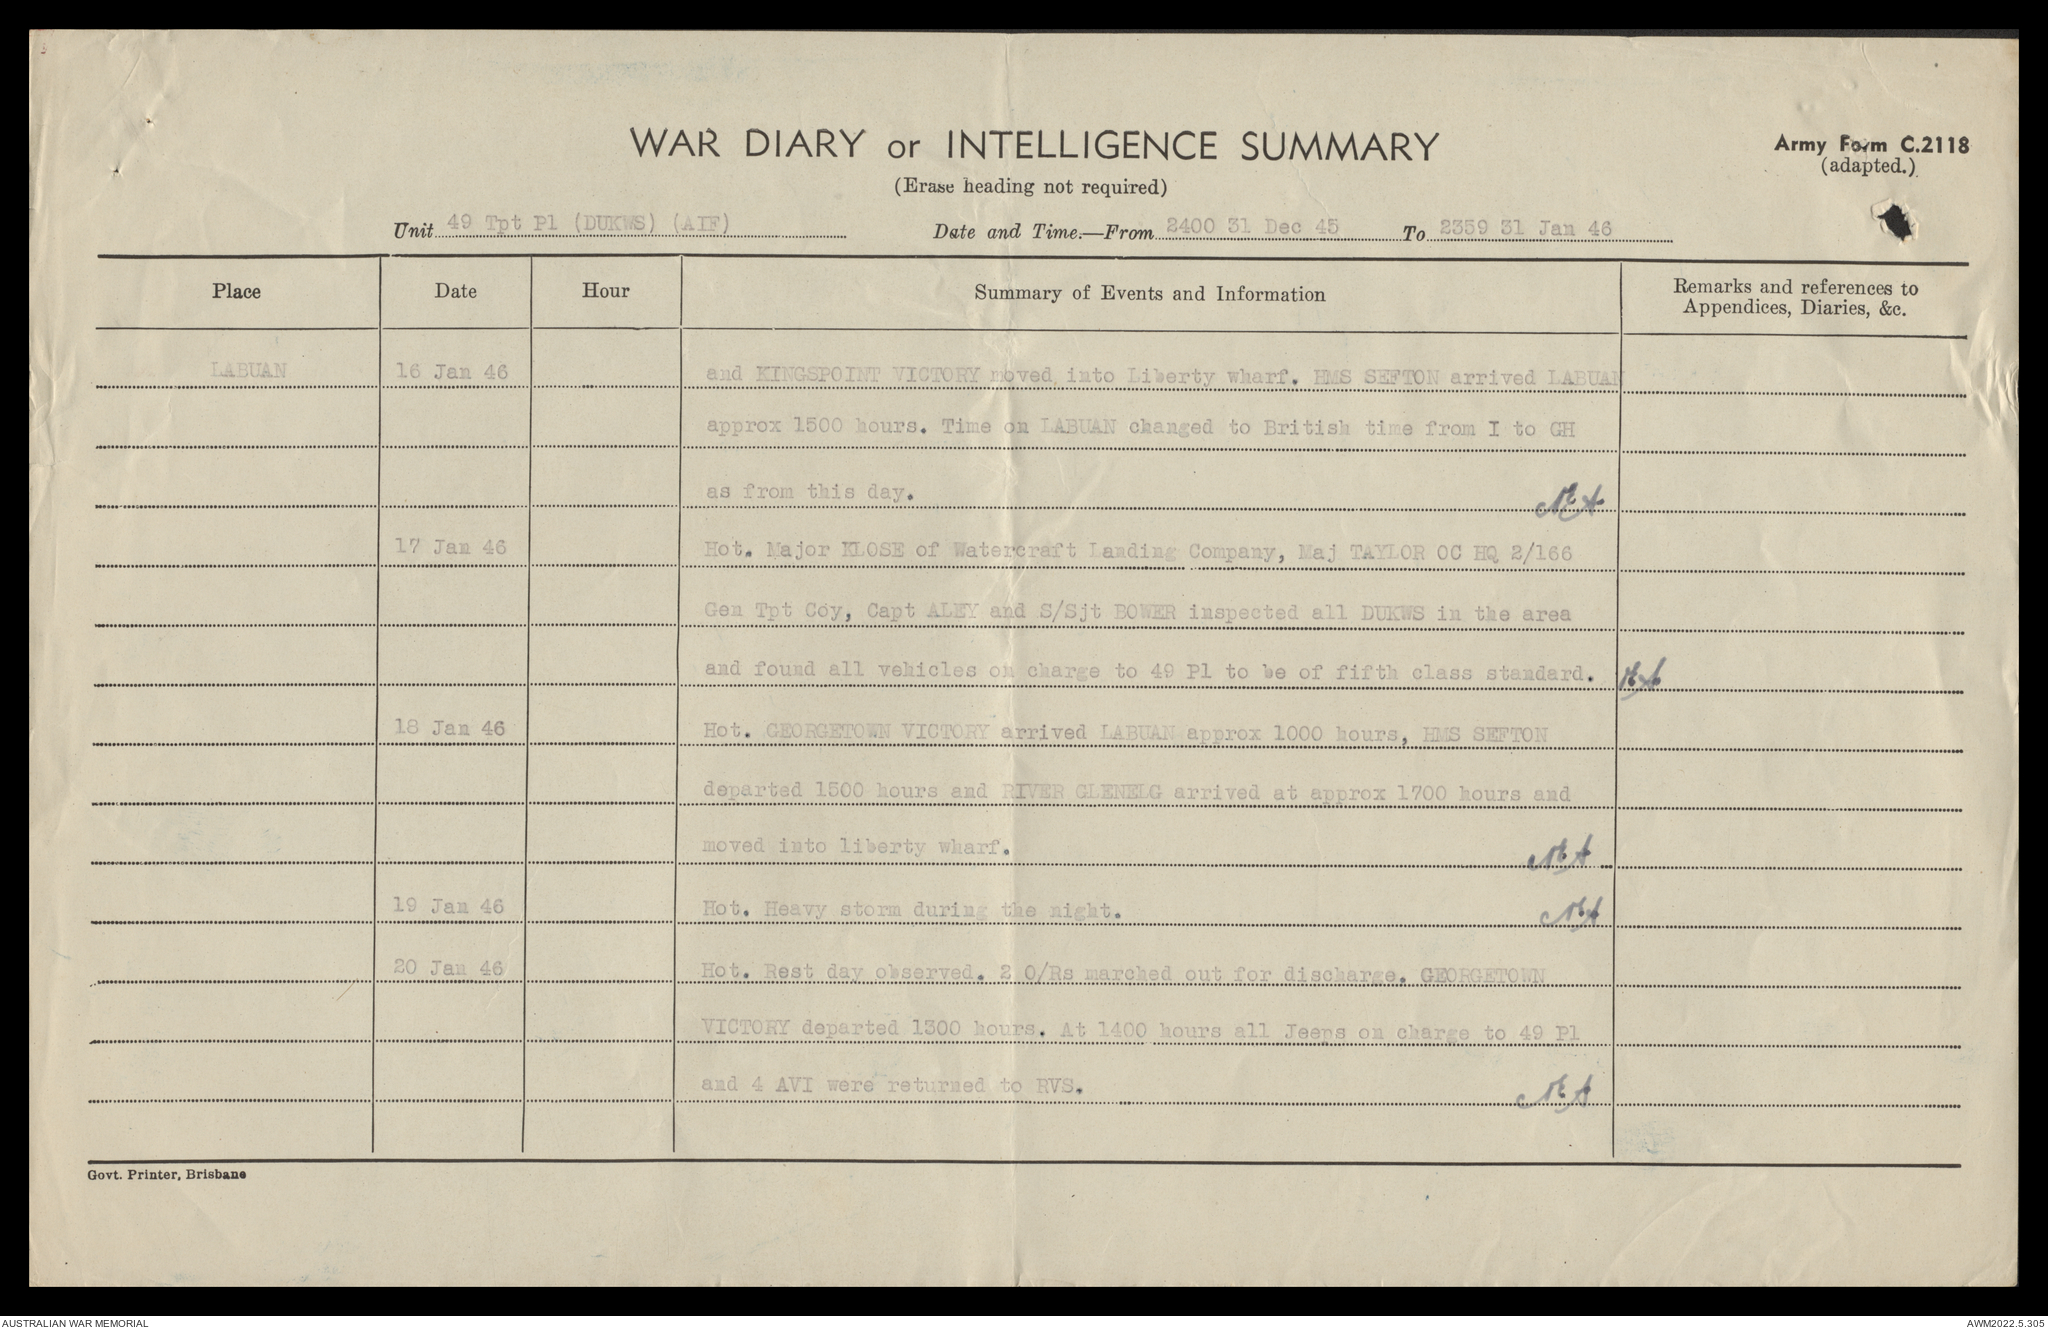 WAR DIARY or INTELLIGENCE SUMMARY
Army Form C.2118
(adapted.)
(Erase heading not required)
Unit 49 Tpt Pl (DUKWS) (AIF) Date and Time.—From 2400 31 Dec 45 To 2359 31 Jan 46
Place Date Hour Summary of Events and Information Remarks and references to
Appendices, Diaries, &c.
LABUAN 16 Jan 46 and KINGSPOINT VICTORY moved into Liberty wharf. HMS SEFTON arrived LABUAN
approx 1500 hours. Time on LABUAN changed to British time from I to GH
as from this day.
17 Jan 46 Hot. Major KLOSE of Watercraft Landing Company, Maj TAYLOR OC HQ 2/166
Gen Tpt Coy, Capt ALEY and S/Sjt BOWER inspected all DUKWS in the area
and found all vehicles on charge to 49 Pl to be of fifth class standard.
18 Jan 46 Hot. GEORGETOWN VICTORY arrived LABUAN approx 1000 hours, HMS SEFTON
departed 1500 hours and RIVER GLENELG arrived at approx 1700 hours and
moved into liberty wharf.
19 Jan 46 Hot. Heavy storm during the night.
20 Jan 46 Hot. Rest day observed. 2 O/Rs marched out for discharge. GEORGETOWN
VICTORY departed 1300 hours. At 1400 hours all Jeeps on charge to 49 Pl
and 4 AVI were returned to RVS.
Govt. Printer, Brisbane
AUSTRALIAN WAR MEMORIAL AWM2022.5.305